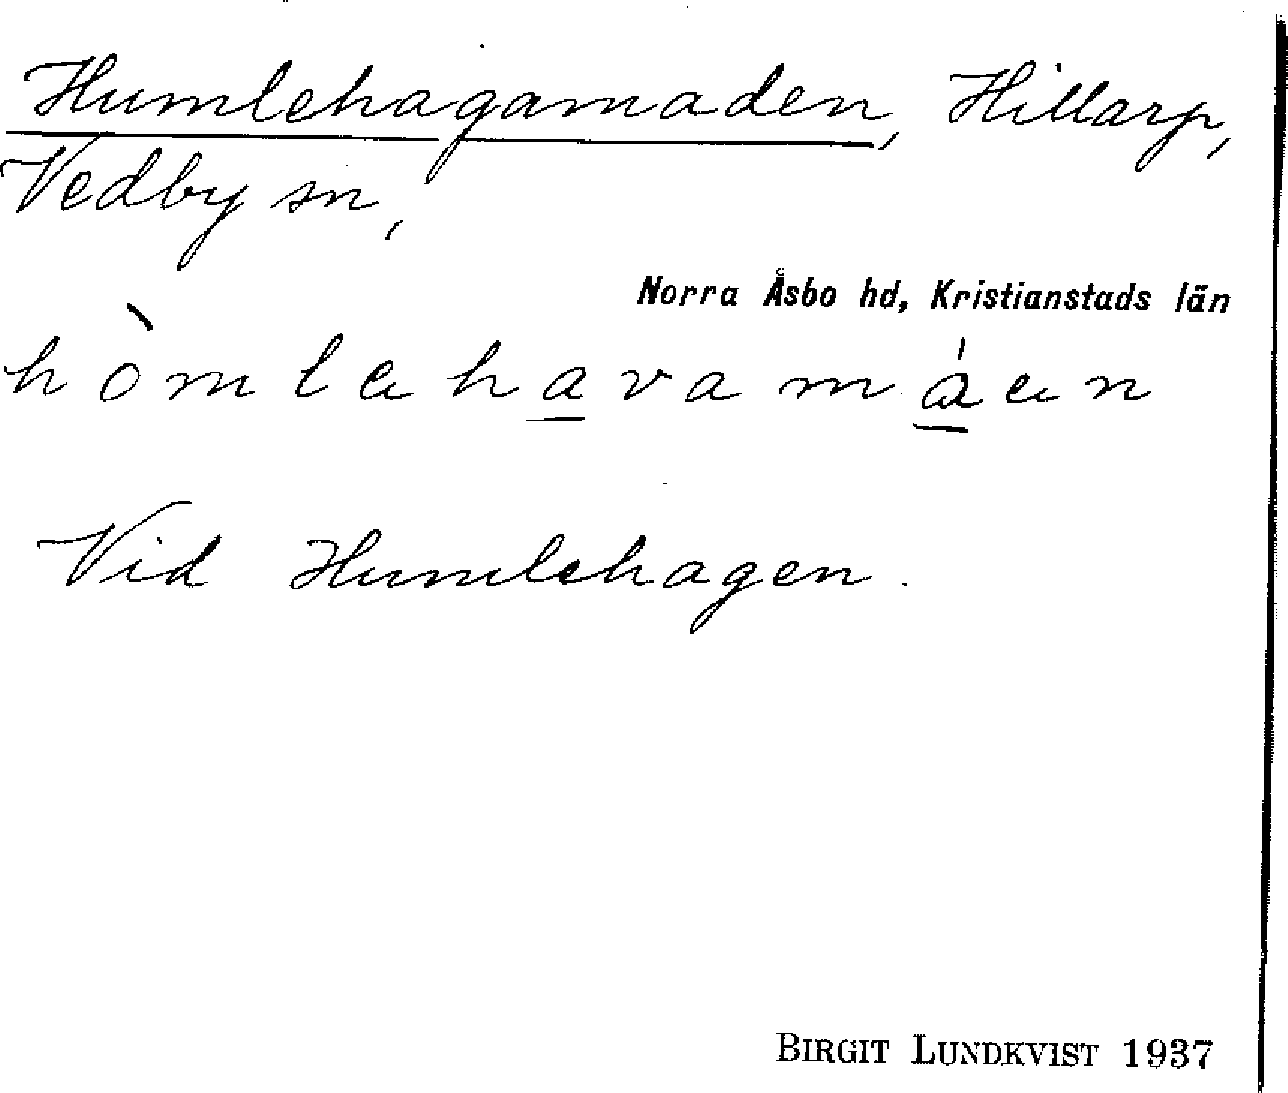 Humlehagamaden, Hillarp,
Vedby sn,
Norra Åsbo hd, Kristianstads län
hòmlahavamáan
Vid Humlehagen.
BIRGIT LUNDKVIST 1937